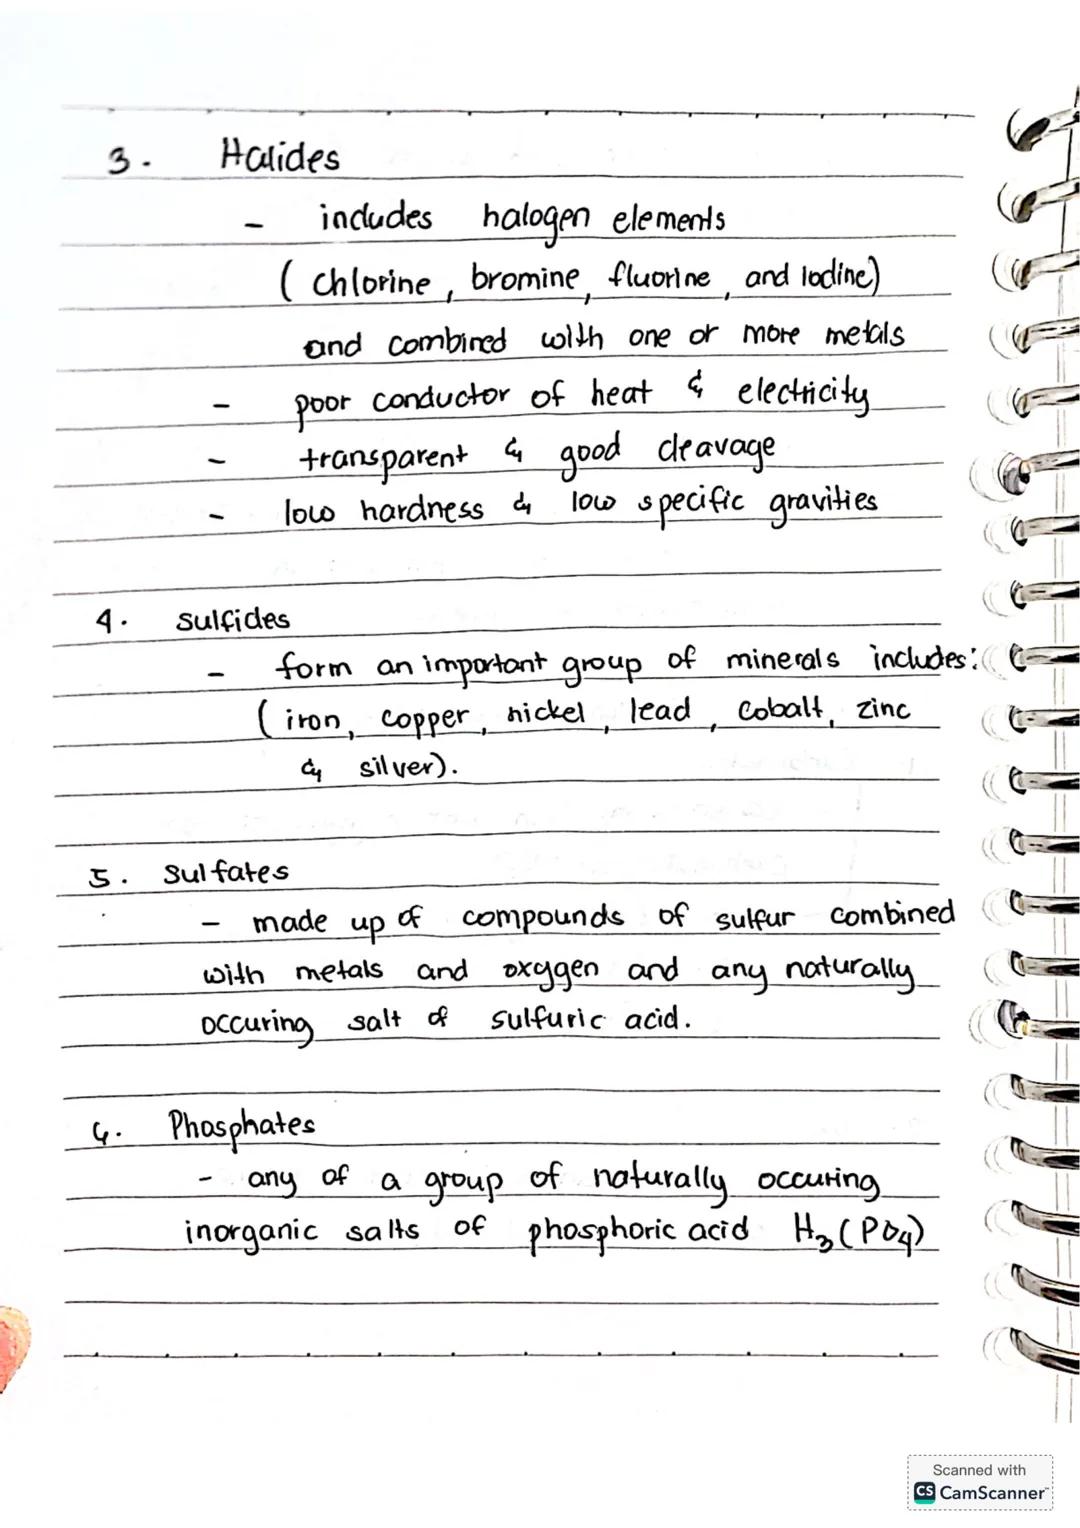 3. Halides
- includes halogen elements
( chlorine, bromine, fluorine, and Iodine)
and combined with one or more metals
- poor conductor of heat & electricity
- transparent & good cleavage
- low hardness & low specific gravities
4. Sulfides
- form an important group of minerals includes:
( iron, copper, nickel, lead, cobalt, zinc
& silver).
5. Sulfates
- made up of compounds of sulfur combined
with metals and oxygen and any naturally
occuring salt of sulfuric acid.
6. Phosphates
- any of a group of naturally occuring
inorganic salts of phosphoric acid H₃(PO₄)
Scanned with
CS CamScanner